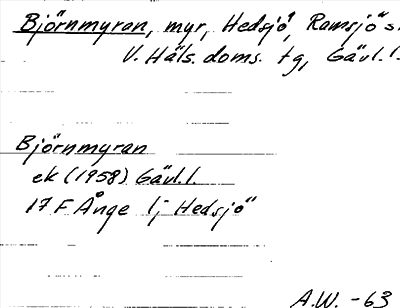 Björnmyran, myr, Hedsjö, Ramsjö s.
V. Häls. doms. tg, Gävl. l.
Björnmyran
ek (1958) Gävl. l.
17 F Ånge lj Hedsjö
A.W. -63